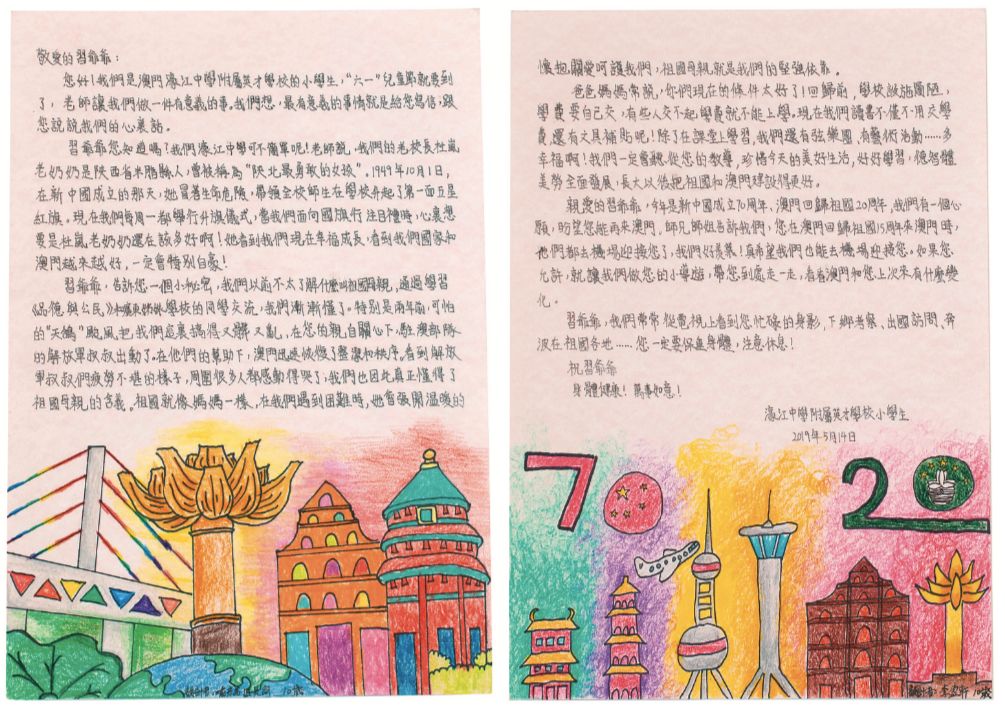 敬愛的習爺爺：
您好！我們是澳門濠江中學附屬英才學校的小學生，“六一”兒童節就要到
了，老師讓我們做一件有意義的事。我們想，最有意義的事情就是給您寫信，跟
您說說我們的心裏話。
習爺爺您知道嗎？我們濠江中學可不簡單呢！老師說，我們的老校長杜嵐
老奶奶是陝西省米脂縣人，曾被稱為“陝北最勇敢的女孩”。1949年10月1日，
在新中國成立的那天，她冒著生命危險，帶領全校師生在學校升起了第一面五星
紅旗。現在我們每周一都舉行升旗儀式，當我們面向國旗行注目禮時，心裏想
要是杜嵐老奶奶還在該多好啊！她看到我們現在幸福成長，看到我們國家和
澳門越來越好，一定會特別自豪！
習爺爺，告訴您一個小秘密，我們以前不太了解什麼叫祖國母親，通過學習
《品德與公民》和 學校的同學交流，我們漸漸懂了。特別是兩年前，可怕
的“天鴿”颱風把我們家裏搞得又髒又亂，在您的親自關心下，駐澳部隊
的解放軍叔叔出動了。在他們的幫助下，澳門迅速恢復了整潔和秩序。看到解放
軍叔叔們疲勞不堪的樣子，周圍很多人都感動得哭了；我們也因此真正懂得了
祖國母親的含義。祖國就像媽媽一樣，在我們遇到困難時，她會張開溫暖的
懷抱關愛呵護我們，祖國母親就是我們的堅強依靠。
爸爸媽媽常說，你們現在的條件太好了！回歸前，學校設施簡陋，
學費要自己交，有些人交不起學費就不能上學。現在我們讀書不僅不用交學
費，還有文具補貼呢！除了在課堂上學習，我們還有弦樂團，有藝術活動……多
幸福啊！我們一定會聽從您的教導，珍惜今天的美好生活，好好學習，德智體
美勞全面發展，長大以後把祖國和澳門建設得更好。
親愛的習爺爺，今年是新中國成立70周年、澳門回歸祖國20周年，我們有一個心
願，盼望您能再來澳門，師兄師姐告訴我們，您在澳門回歸祖國15周年來澳門時，
他們都去機場迎接您了，我們好羨慕！真希望我們也能去機場迎接您。如果您
允許，就讓我們做您的小導遊，帶您到處走一走，看看澳門和您上次來有什麼變
化。
習爺爺，我們常常從電視上看到您忙碌的身影，下鄉考察、出國訪問、奔
波在祖國各地……您一定要保重身體，注意休息！
祝習爺爺
身體健康！萬事如意！
濠江中學附屬英才學校小學生
2019年5月14日
70 20
10歲
10歲